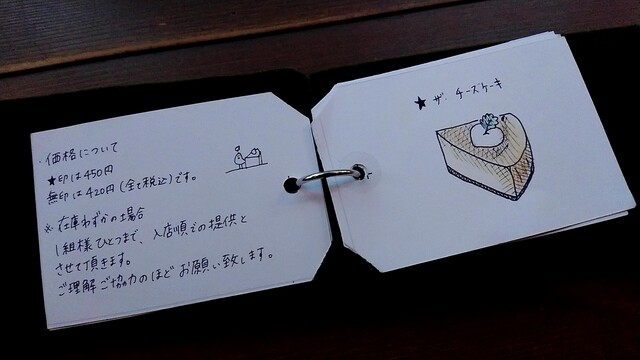 ・価格について
★印は450円
無印は420円(全て税込)です。
※在庫わずかの場合
1組様ひとつまで、入店順での提供と
させて頂きます。
ご理解ご協力のほどお願い致します。
★ ザ・チーズケーキ